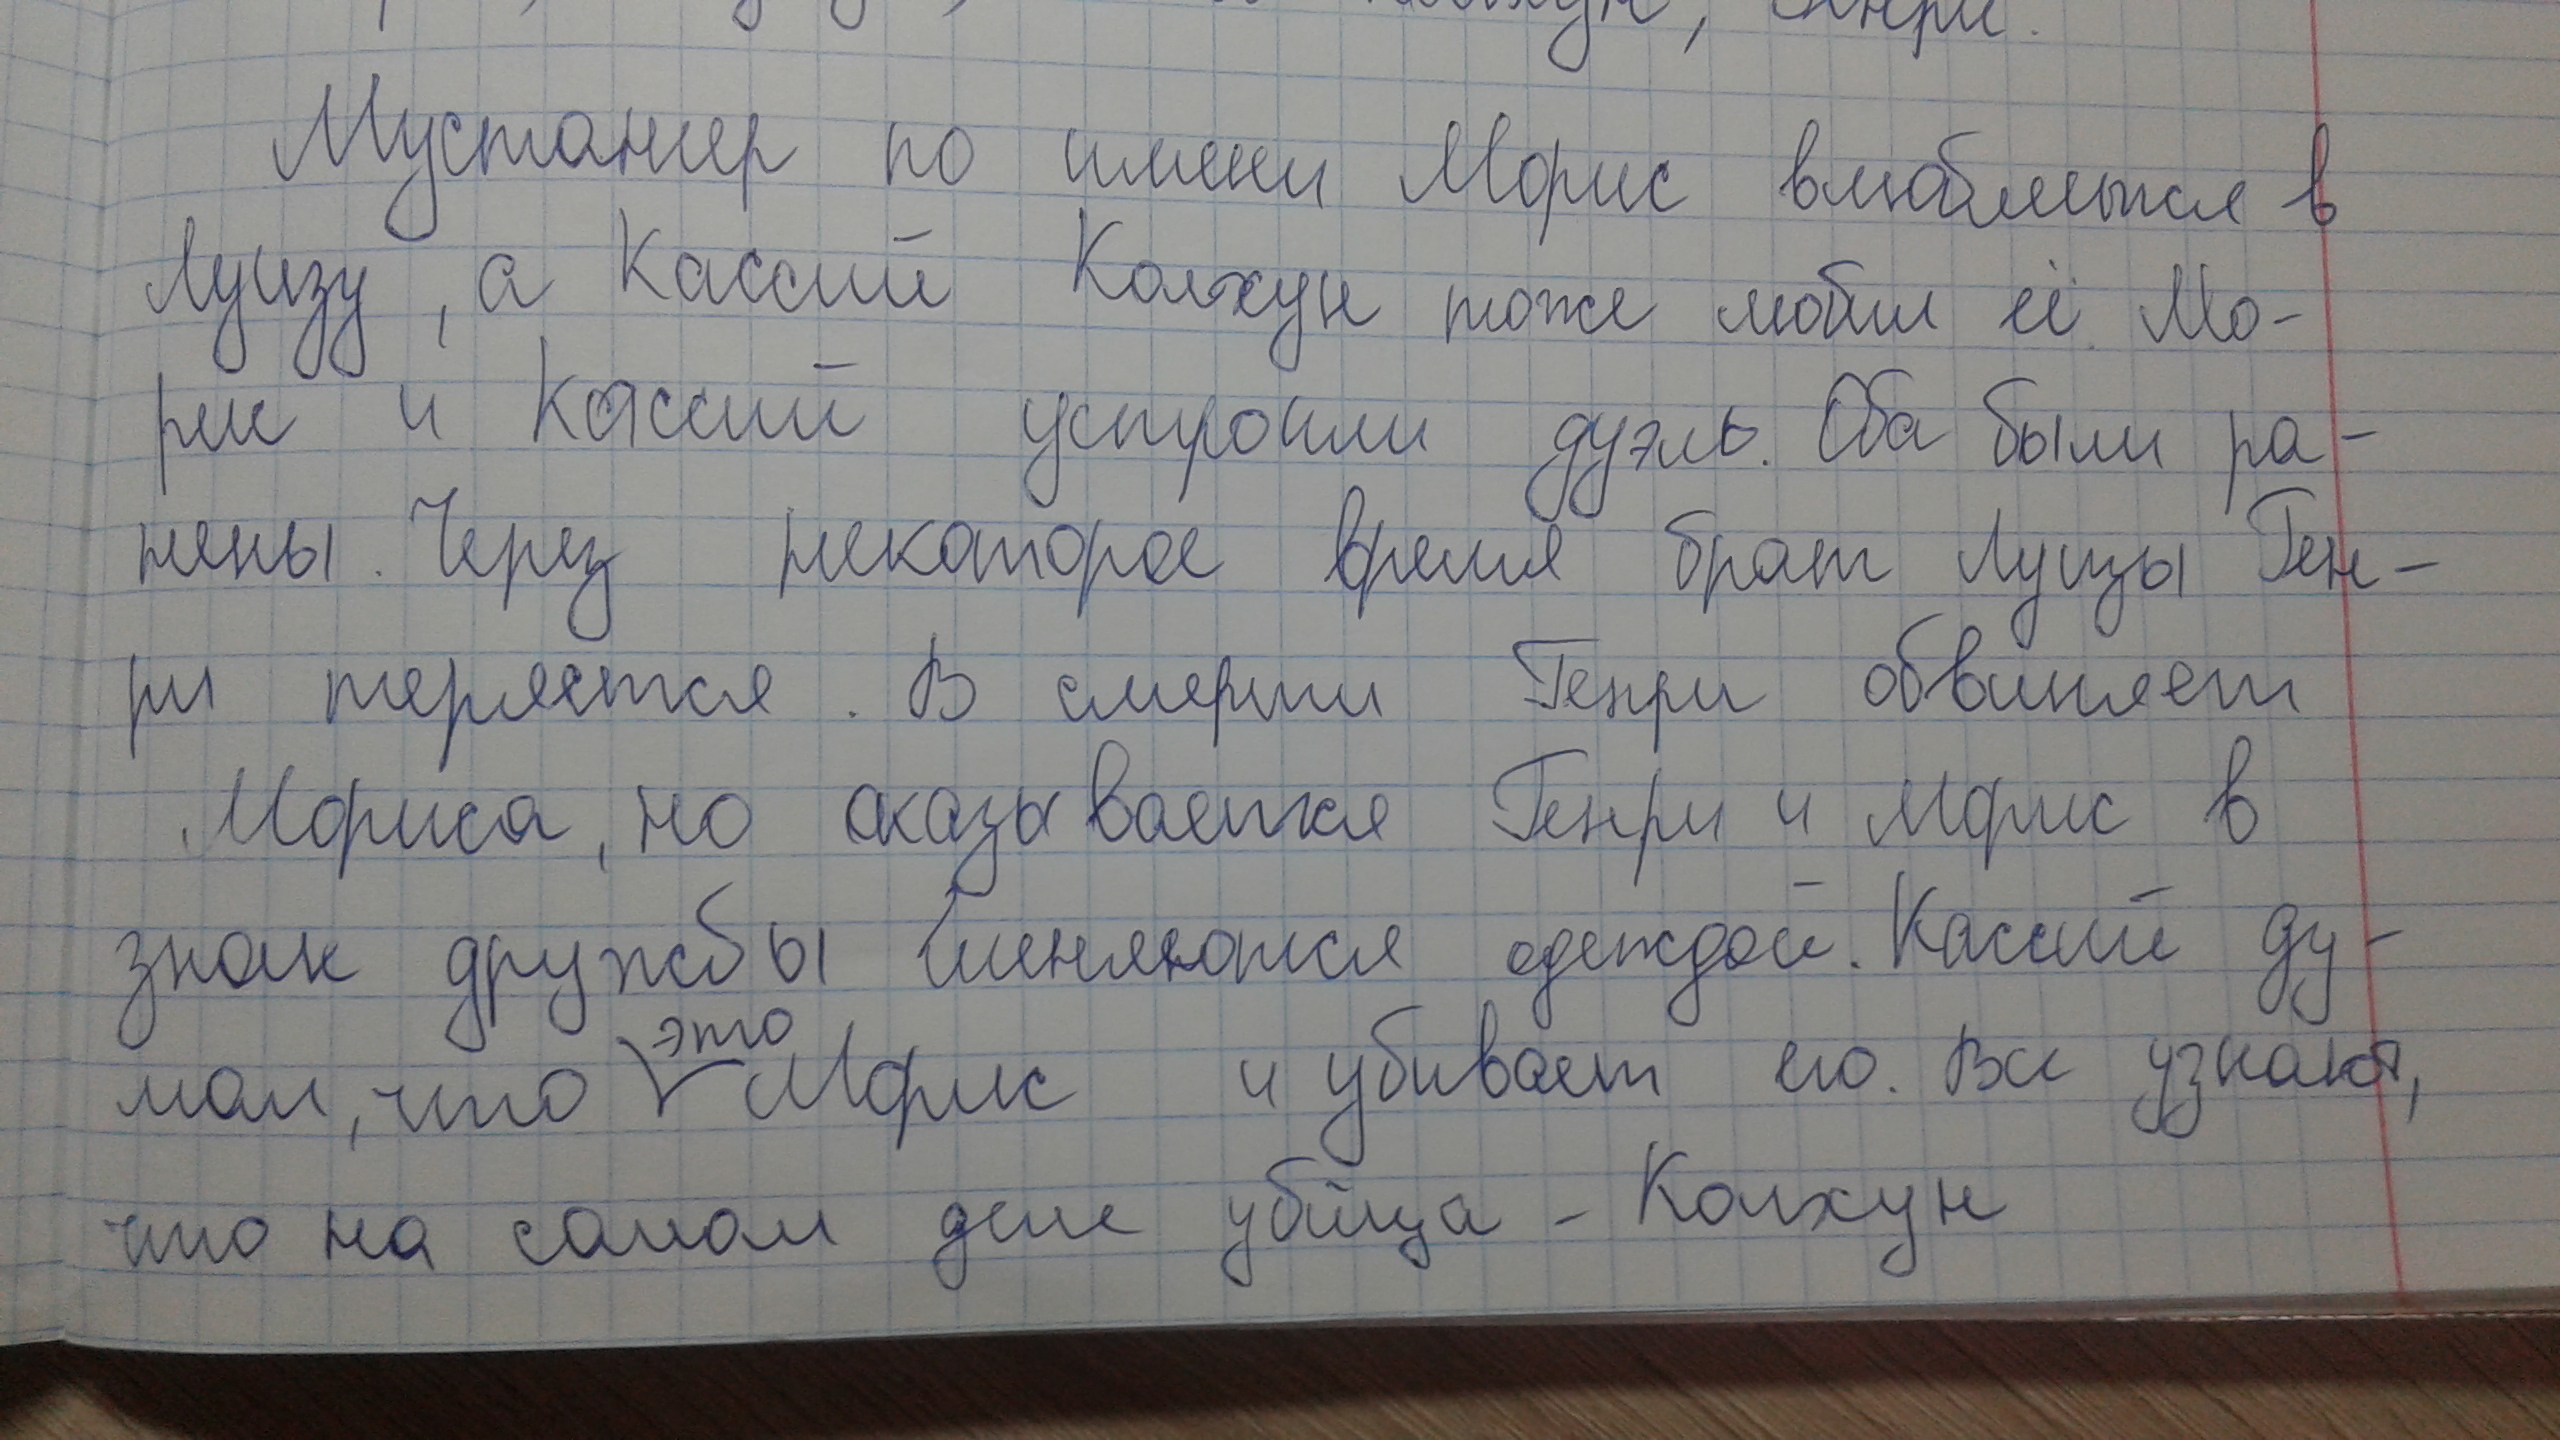 Колхун, Генри.
Мустангер по имени Морис влюбляется в
Луизу, а Кассий Колхун тоже любил её. Мо-
рис и Кассий устроили дуэль. Оба были ра-
нены. Через некоторое время брат Луизы Ген-
ри теряется. В смерти Генри обвиняет
Мориса, но оказывается Генри и Морис в
знак дружбы меняются одеждой. Кассий ду-
мал, что это Морис и убивает его. Все узнают,
что на самом деле убийца - Колхун